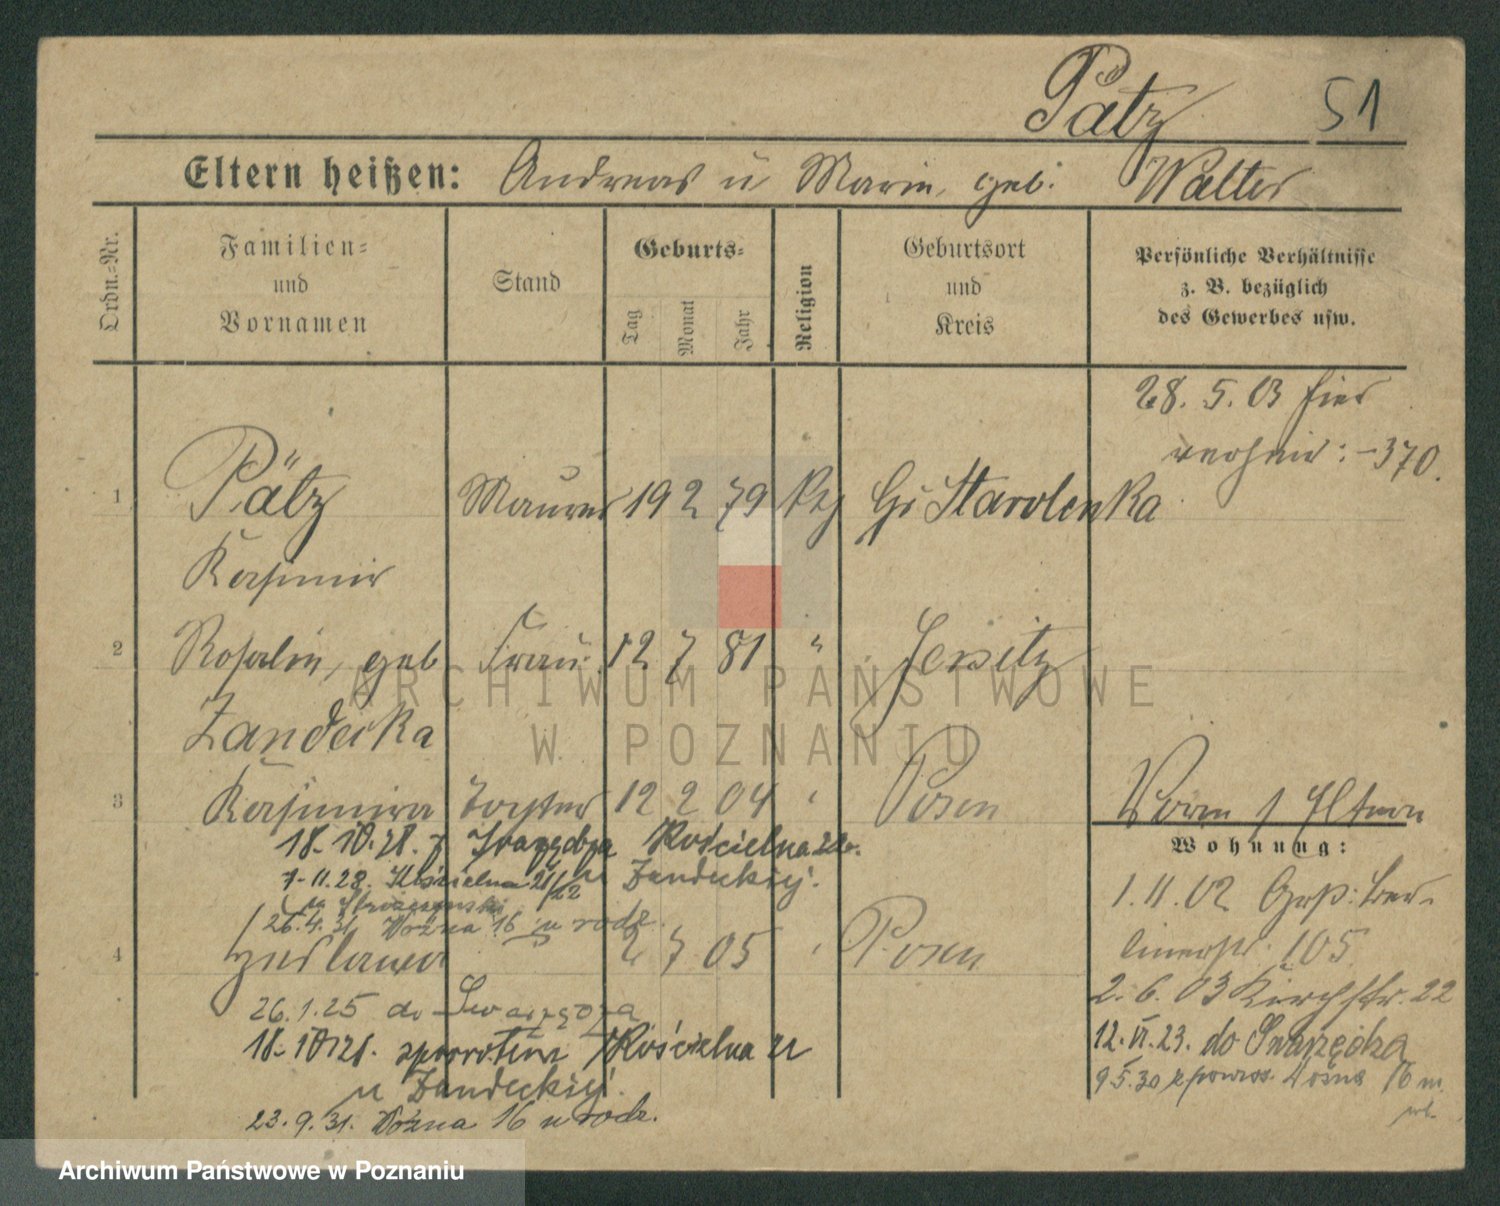 Pätz 51
Eltern heißen: Andreas u Marie, geb. Walter
Ordn.=Nr.
Familien=
und
Vornamen
Stand
Geburts=
Tag Monat Jahr
Religion
Geburtsort
und
Kreis
Persönliche Verhältnisse
z. B. bezüglich
des Gewerbes usw.
28. 5. 03 hier
verheir: -370.
1 Pätz Maurer 19 2 79 Ktg Gr Starolenka
Kasimir
2 Rosalie, geb Frau 12 7 81 " Jersitz
Zandecka
3 Kasimira Tochter 12 2 04 " Posen
18-10.28. z Swarzędza Kościelna 22
u Zandeckiej.
7-11.28. Kościelna 21/22
26.4.31 Woźna 16 u rodz.
4 2 7 05 " Posen
26.1.25 do Swarzędza
18-10 28. z powrotem Kościelna 22
u Zandeckiej.
23.9.31. Woźna 16 u rodz.
Worm / Eltern
Wohnung:
1.11.02 Groß: Ber-
linerstr. 105
2. 6. 03 Kirchstr. 22
12.VI.23. do Swarzędza
9.5.30 z powrot. Woźna 16 m.
Archiwum Państwowe
w Poznaniu
Archiwum Państwowe w Poznaniu